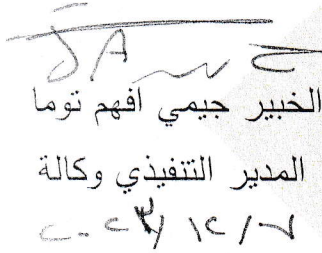 الخبير جيمي افهم توما
المدير التنفيذي وكالة
٢٠٢٣/١٢/٧